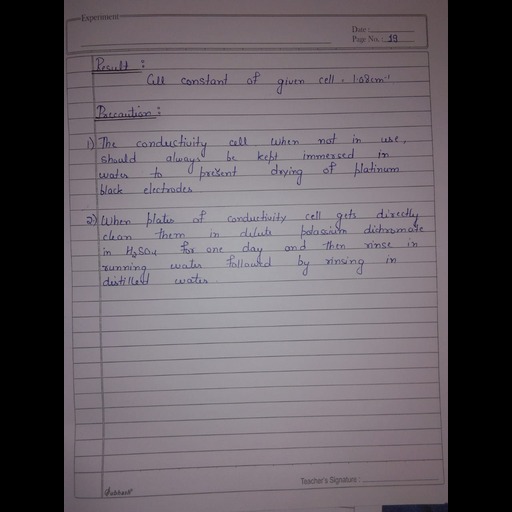 Experiment
Date :
Page No. : 19
Result :
Cell constant of given cell = 1.08cm⁻¹
Precaution :
1) The conductivity cell when not in use,
should always be kept immersed in
water to present drying of platinum
black electrodes
2) When plates of conductivity cell gets directly
clean them in delute potassium dichromate
in H₂SO₄ for one day and then rinse in
running water followed by rinsing in
distilled water.
Teacher's Signature :